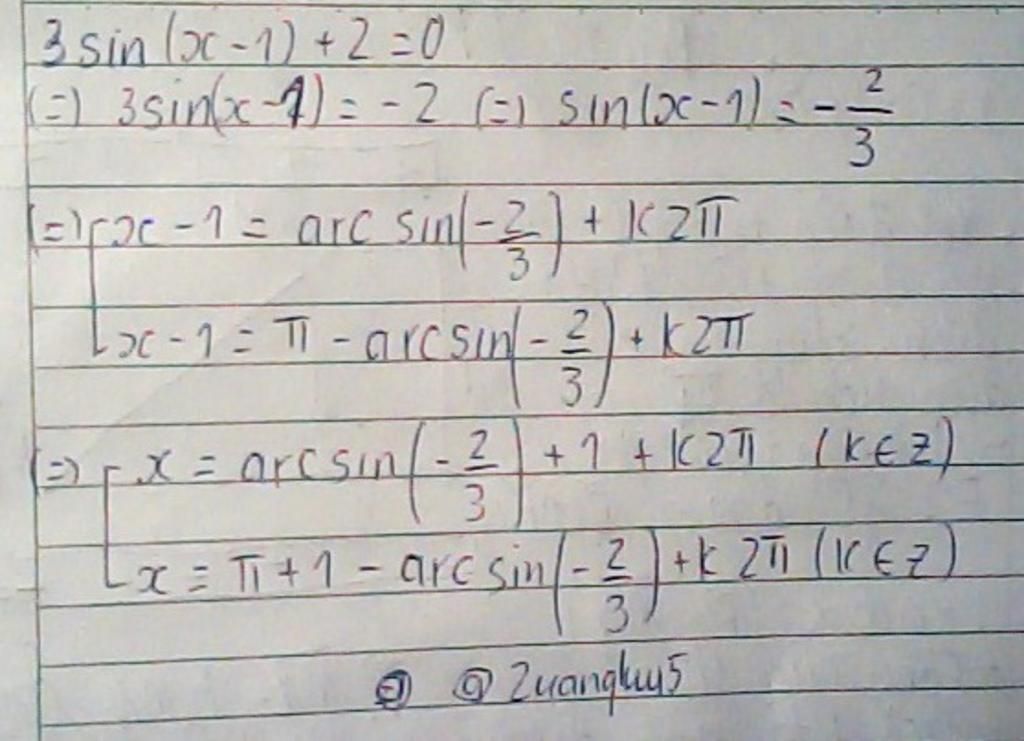 3 sin (x - 1) + 2 = 0
(=) 3sin(x - 1) = - 2 (=) sin(x - 1) = - 2/3
(=) [ x - 1 = arc sin(- 2/3) + k2π
x - 1 = π - arcsin(- 2/3) + k2π
(=) [ x = arcsin(- 2/3) + 1 + k2π (k ∈ z)
x = π + 1 - arcsin(- 2/3) + k2π (k ∈ z)